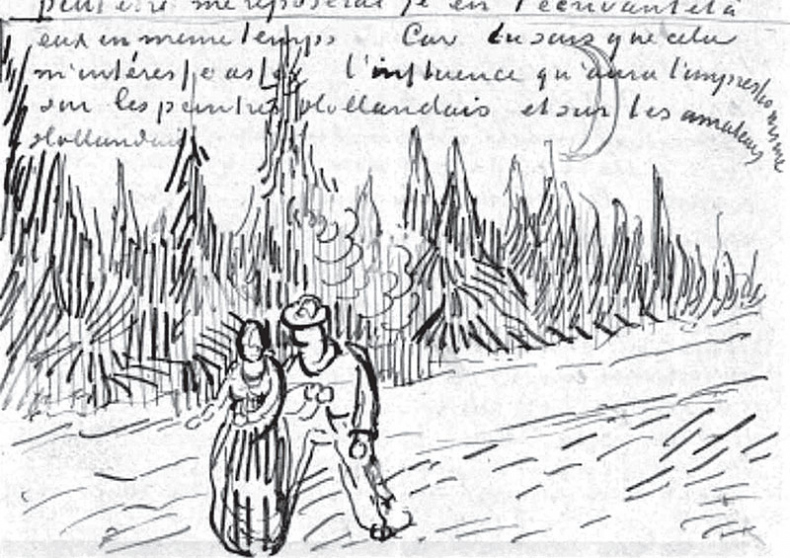 peut être me reposerai je en t'écrivant et à
eux en meme temps Car tu sais que cela
m'intéresse assez l'influence qu'aura l'impressionisme
sur les peintres Hollandais et sur les amateurs
Hollandais